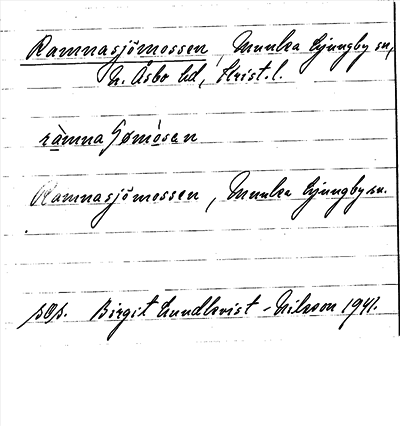 Ramnasjömossen, Munka Ljungby sn,
N. Åsbo hd, Krist. l.
ràmna sjømòsen
Ramnasjömossen, Munka Ljungby sn.
Birgit Lundkvist-Nilsson 1941.